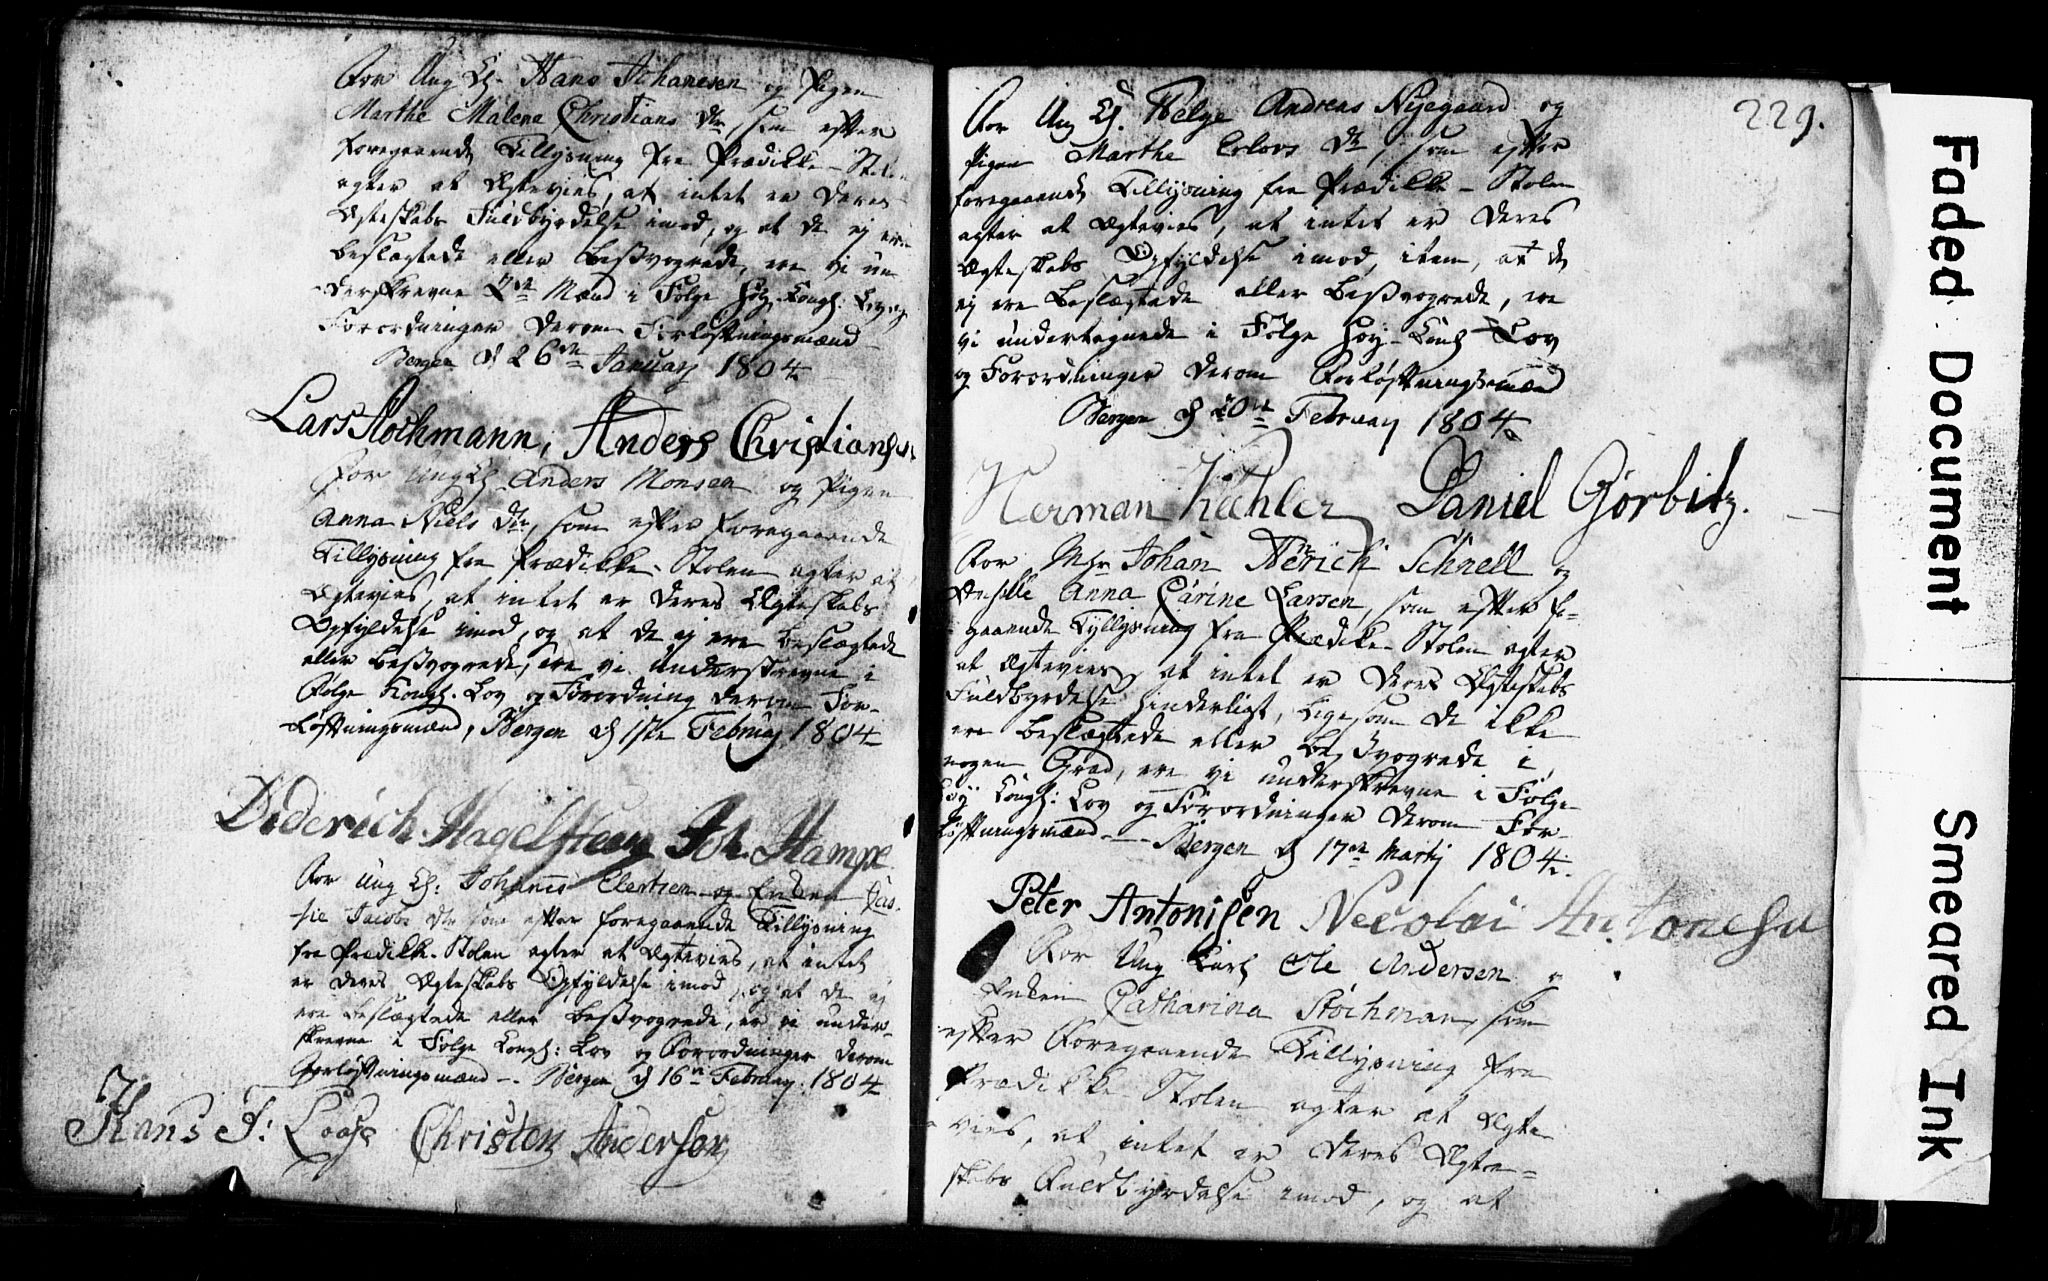 For Ung K. Hans Johanesen og Pigen
Marthe Malena Christians dtr, som efter
foregaaende Tillysning fra Prædikke-Stolen
agter at Ægtevies, at intet er deres
Ægteskabs Fuldbyrdelse imod, og at de ej ere
beslægtede eller besvogrede, ere vi un
derskrevne Mænd i Følge Høy Kongl: Lov og
Forordninger derom Forløftningsmænd
Bergen d 26de January 1804
Lars Stochmann, Anders Christiansen
For Ung K. Anders Monsen og Pigen
Anna Niels dtr, som efter foregaaende
Tillysning fra Prædikke-Stolen agter at
Ægtevies, at intet er deres Ægteskabs
Opfyldelse imod, og at de ej ere beslægtede
eller besvogrede, ere vi underskrevne i
Følge Kongl. Lov og Forordning derom For-
løftningsmænd, Bergen d 1ste February 1804
Diderich Hagelsteen Joh. Hampe
For Ung K: Johannes Elertsen og Enken
Jacobs dtr som efter foregaaende Tillysning
fra Prædikke-Stolen agter at Ægtevies, at intet
er deres Ægteskabs Opfyldelse imod, og at de ej
ere beslægtede eller besvogrede, er vi under-
skrevne i Følge Kongl: Lov og Forordninger derom
Forløftningsmænd -- Bergen d 16de February 1804
Hans J: Loose Christen Andersen
229.
For Ung K. Helge Andreas Nyegaard og
Pigen Marthe Elovs dtr, som efter
foregaaende Tillysning fra Prædikke-Stolen
agter at Ægtevies, at intet er deres
Ægteskabs Opfyldelse imod, item, at de
ej ere beslægtede eller besvogrede, ere
vi undertegnede i Følge Høy-Kongl Lov
og Forordninger derom Forløftningsmænd
Bergen d 10de February 1804
Herman Kechler Daniel Gørbitz.
For Mgr Johan Henrich Schnell og
Anna Carine Larsen, som efter fo-
gaaende Tyllysning fra Prædike-Stolen agter
at Ægtevies, at intet er deres Ægteskabs
Fuldbyrdelse hinderligt, ligesom de ikke
ere beslægtede eller besvogrede i
nogen Grad, ere vi underskrevne i Følge
Høy Kongl: Lov og Forordninger derom For-
løftningsmænd -- Bergen d 17de Martij 1804.
Peter Antonisen Necolai Antonesen
For Ung Karl Ole Andersen og
Enken Catharina Stochman, som
efter Foregaaende Tillysning fra
Prædikke-Stolen agter at Ægte
vies, at intet er deres Ægte-
skabs Fuldbyrdelse imod, og at
Faded Document
Smeared Ink